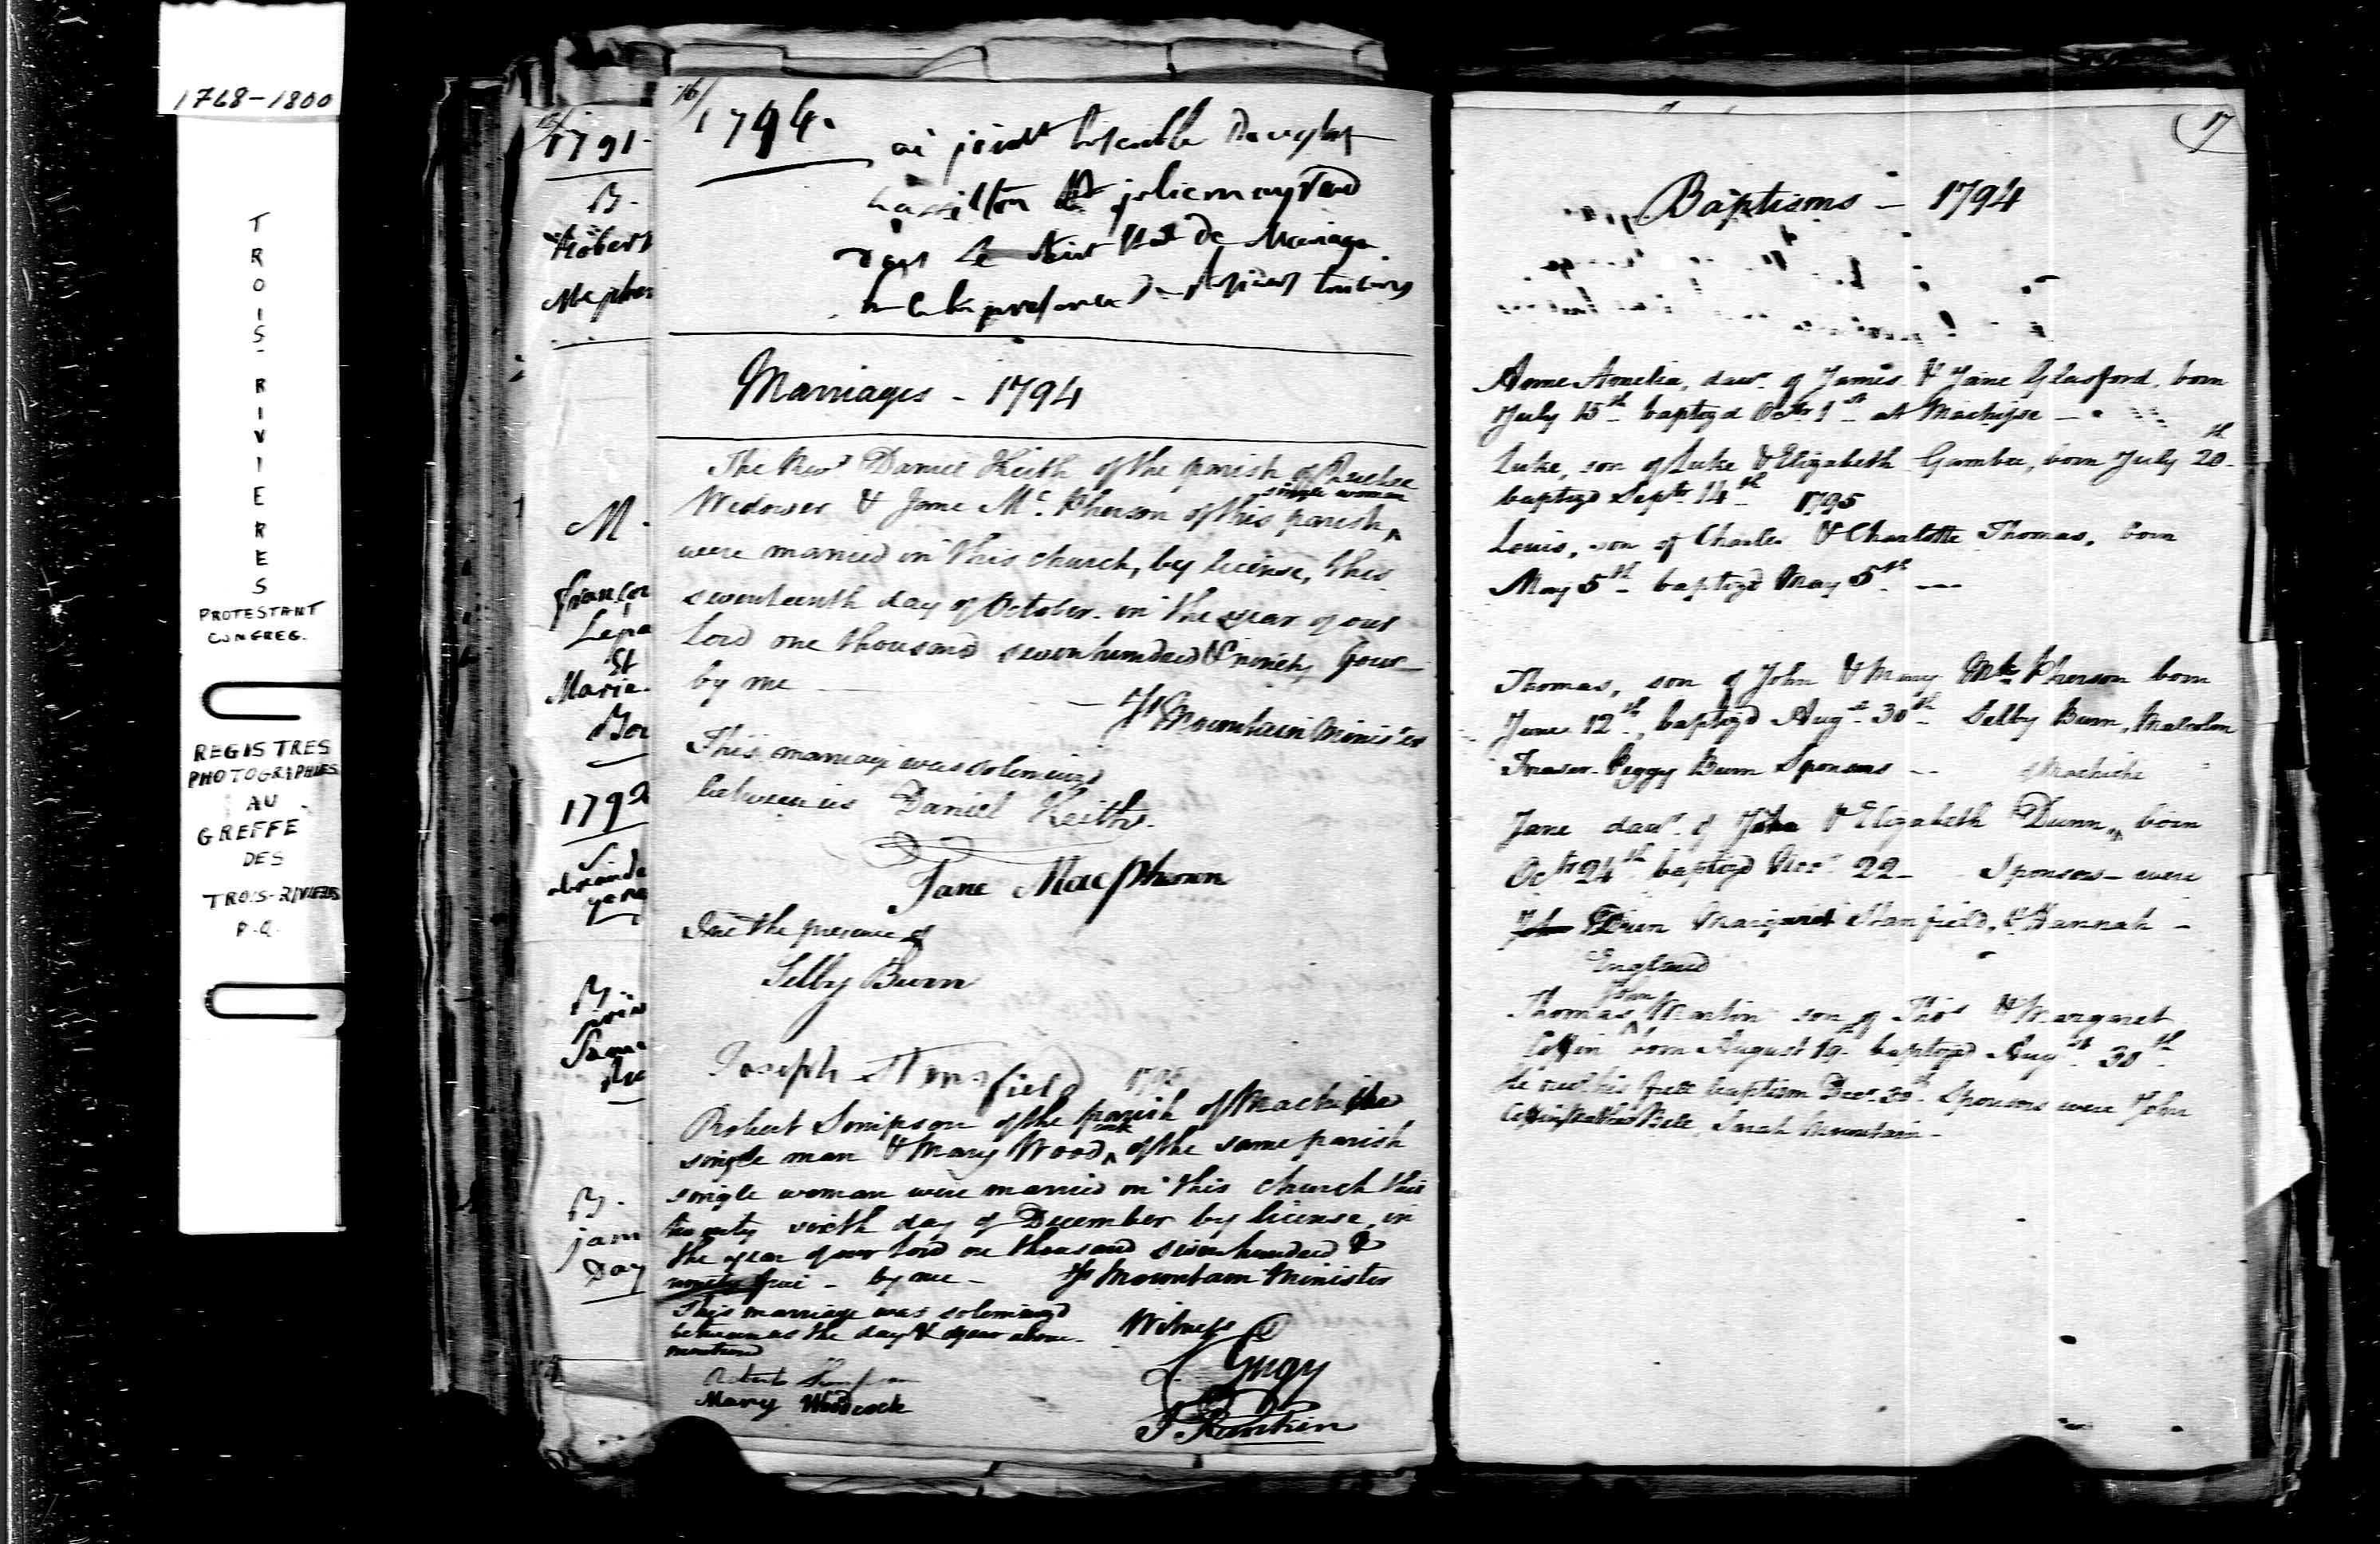 1768-1800
TROIS-RIVIERES
PROTESTANT
CONGREG.
REGISTRES
PHOTOGRAPHIES
AU
GREFFE
DES
TROIS-RIVIERES
P.Q.
15/
1791-
B.
Robert
Mcpher
M.
françoi
Lepa
St
Marie.
Bou
1792
B.
Same
B.
jam
Day
16/
1794.
ai joint ensemble
hamilton et
dans le Saint de Mariage
en la presence de
Marriages - 1794
The Revd Daniel Keith of the parish of Quebec
Widower & Jane Mc Pherson of this parish, single woman
were married in this church, by license, this
seventeenth day of October in the year of our
Lord one thousand seven hundred & ninety four
by me — — Mountain Minister
This marriage was solemnized
between us Daniel Keith
Jane MacPherson
In the presence of
Selby Burn
Joseph Stansfield 1795
Robert Simpson of the parish of Machiche
single man & Mary Woodcock of the same parish
single woman were married in this church this
twenty sixth day of December by license, in
the year of our Lord one thousand seven hundred &
ninety five - by me - Mountain Minister
This marriage was solemnized
between us the day & year above
mentioned
Witness
Robert Simpson
Mary Woodcock
Gugy
Rankin
17
Baptisms - 1794
Anne Amelia, dawr. of James & Jane Glasford, born
July 15th baptizd Octr 1st at Machisse -
Luke, son of Luke & Elizabeth Gamba, born July 20th
baptizd Septr 14th
1795
Louis, son of Charles & Charlotte Thomas, born
May 5th baptizd May 5th —
Thomas, son of John & Mary Mc Pherson born
June 12th, baptizd Augst 30th Selby Burn, Malcolm
Fraser Peggy Burn Sponsors --
Jane dawr. of John & Elizabeth Dunn, of Machiche born
Octr 24th baptizd Novr 22 - Sponsors - were
John Dunn Margaret Stanfield, & Hannah -
England
Thomas John Martin son of Thos & Margaret
Coffin born August 19 baptizd Augst 30th
he recd his full baptism Decr 30th Sponsors were John
Coffin, Mathew Bell, Sarah Mountain -